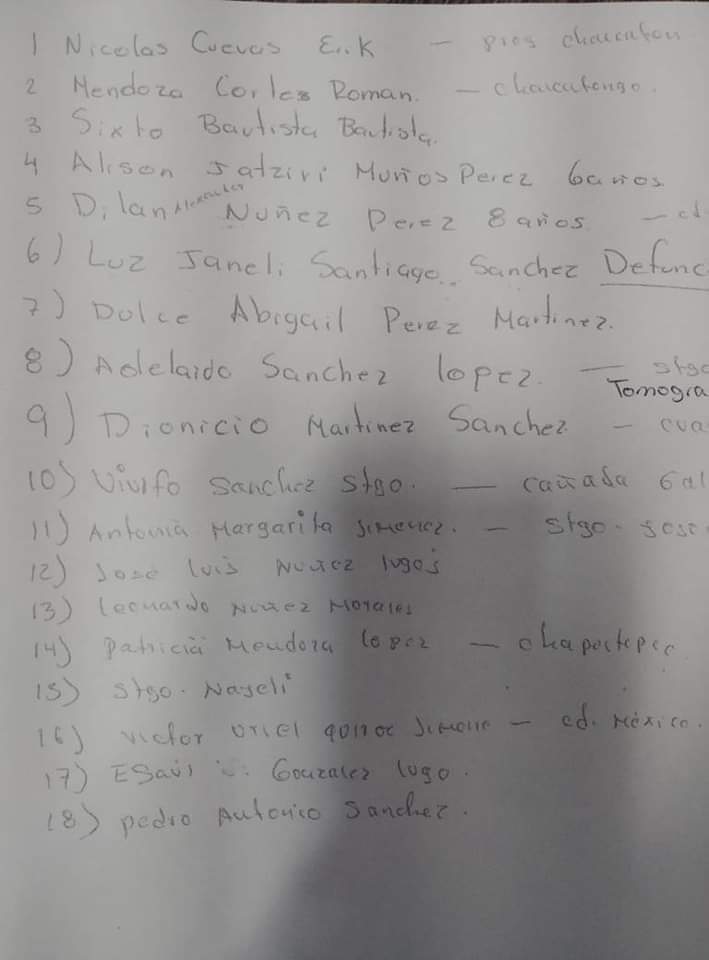 1 Nicolas Cuevas E..K —
2 Mendoza Cortes Roman. — chaicatongo.
3 Sixto Bautista Bautista.
4 Alison Jatziri Muños Perez 6 años
5 Dilan Alexander Nuñez Perez 8 años. — cd.
6) Luz Janeli Santiago.. Sanchez Defunc
7) Dulce Abigail Perez Martinez.
8) Adelaido Sanchez lopez. — stgo
Tomogra
9) Dionicio Martinez Sanchez. — cua
10) Sanchez Stgo. — cañada Gal
11) Antonia Margarita Jimenez. — Stgo. Jose
12) Jose luis Nuñez lugos
13) leonardo Nuñez Morales
14) patricia Mendoza lopez — chapoctepec
15) Stgo. Nayeli
16) victor Uriel — cd. México.
17) Gonzalez lugo.
18) pedro Antonio Sanchez.